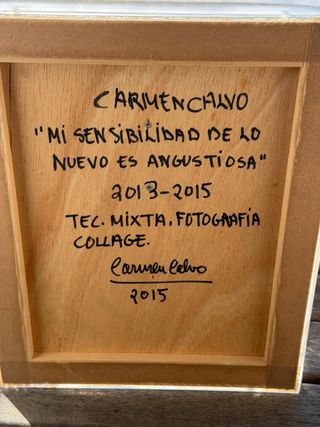 CARMEN CALVO
"MI SENSIBILIDAD DE LO
NUEVO ES ANGUSTIOSA"
2013-2015
TEC. MIXTA, FOTOGRAFÍA
COLLAGE.
Carmen Calvo
2015